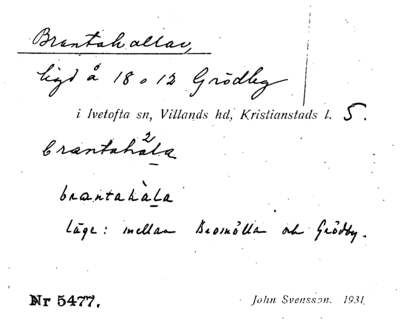 Brantahallar,
ligd å 18 o 12 Grödby
i Ivetofta sn, Villands hd, Kristianstads l. 5.
brantahåla
brantahàla
läge: mellan Bromölla och Grödby.
Nr 5477. John Svensson. 1931.